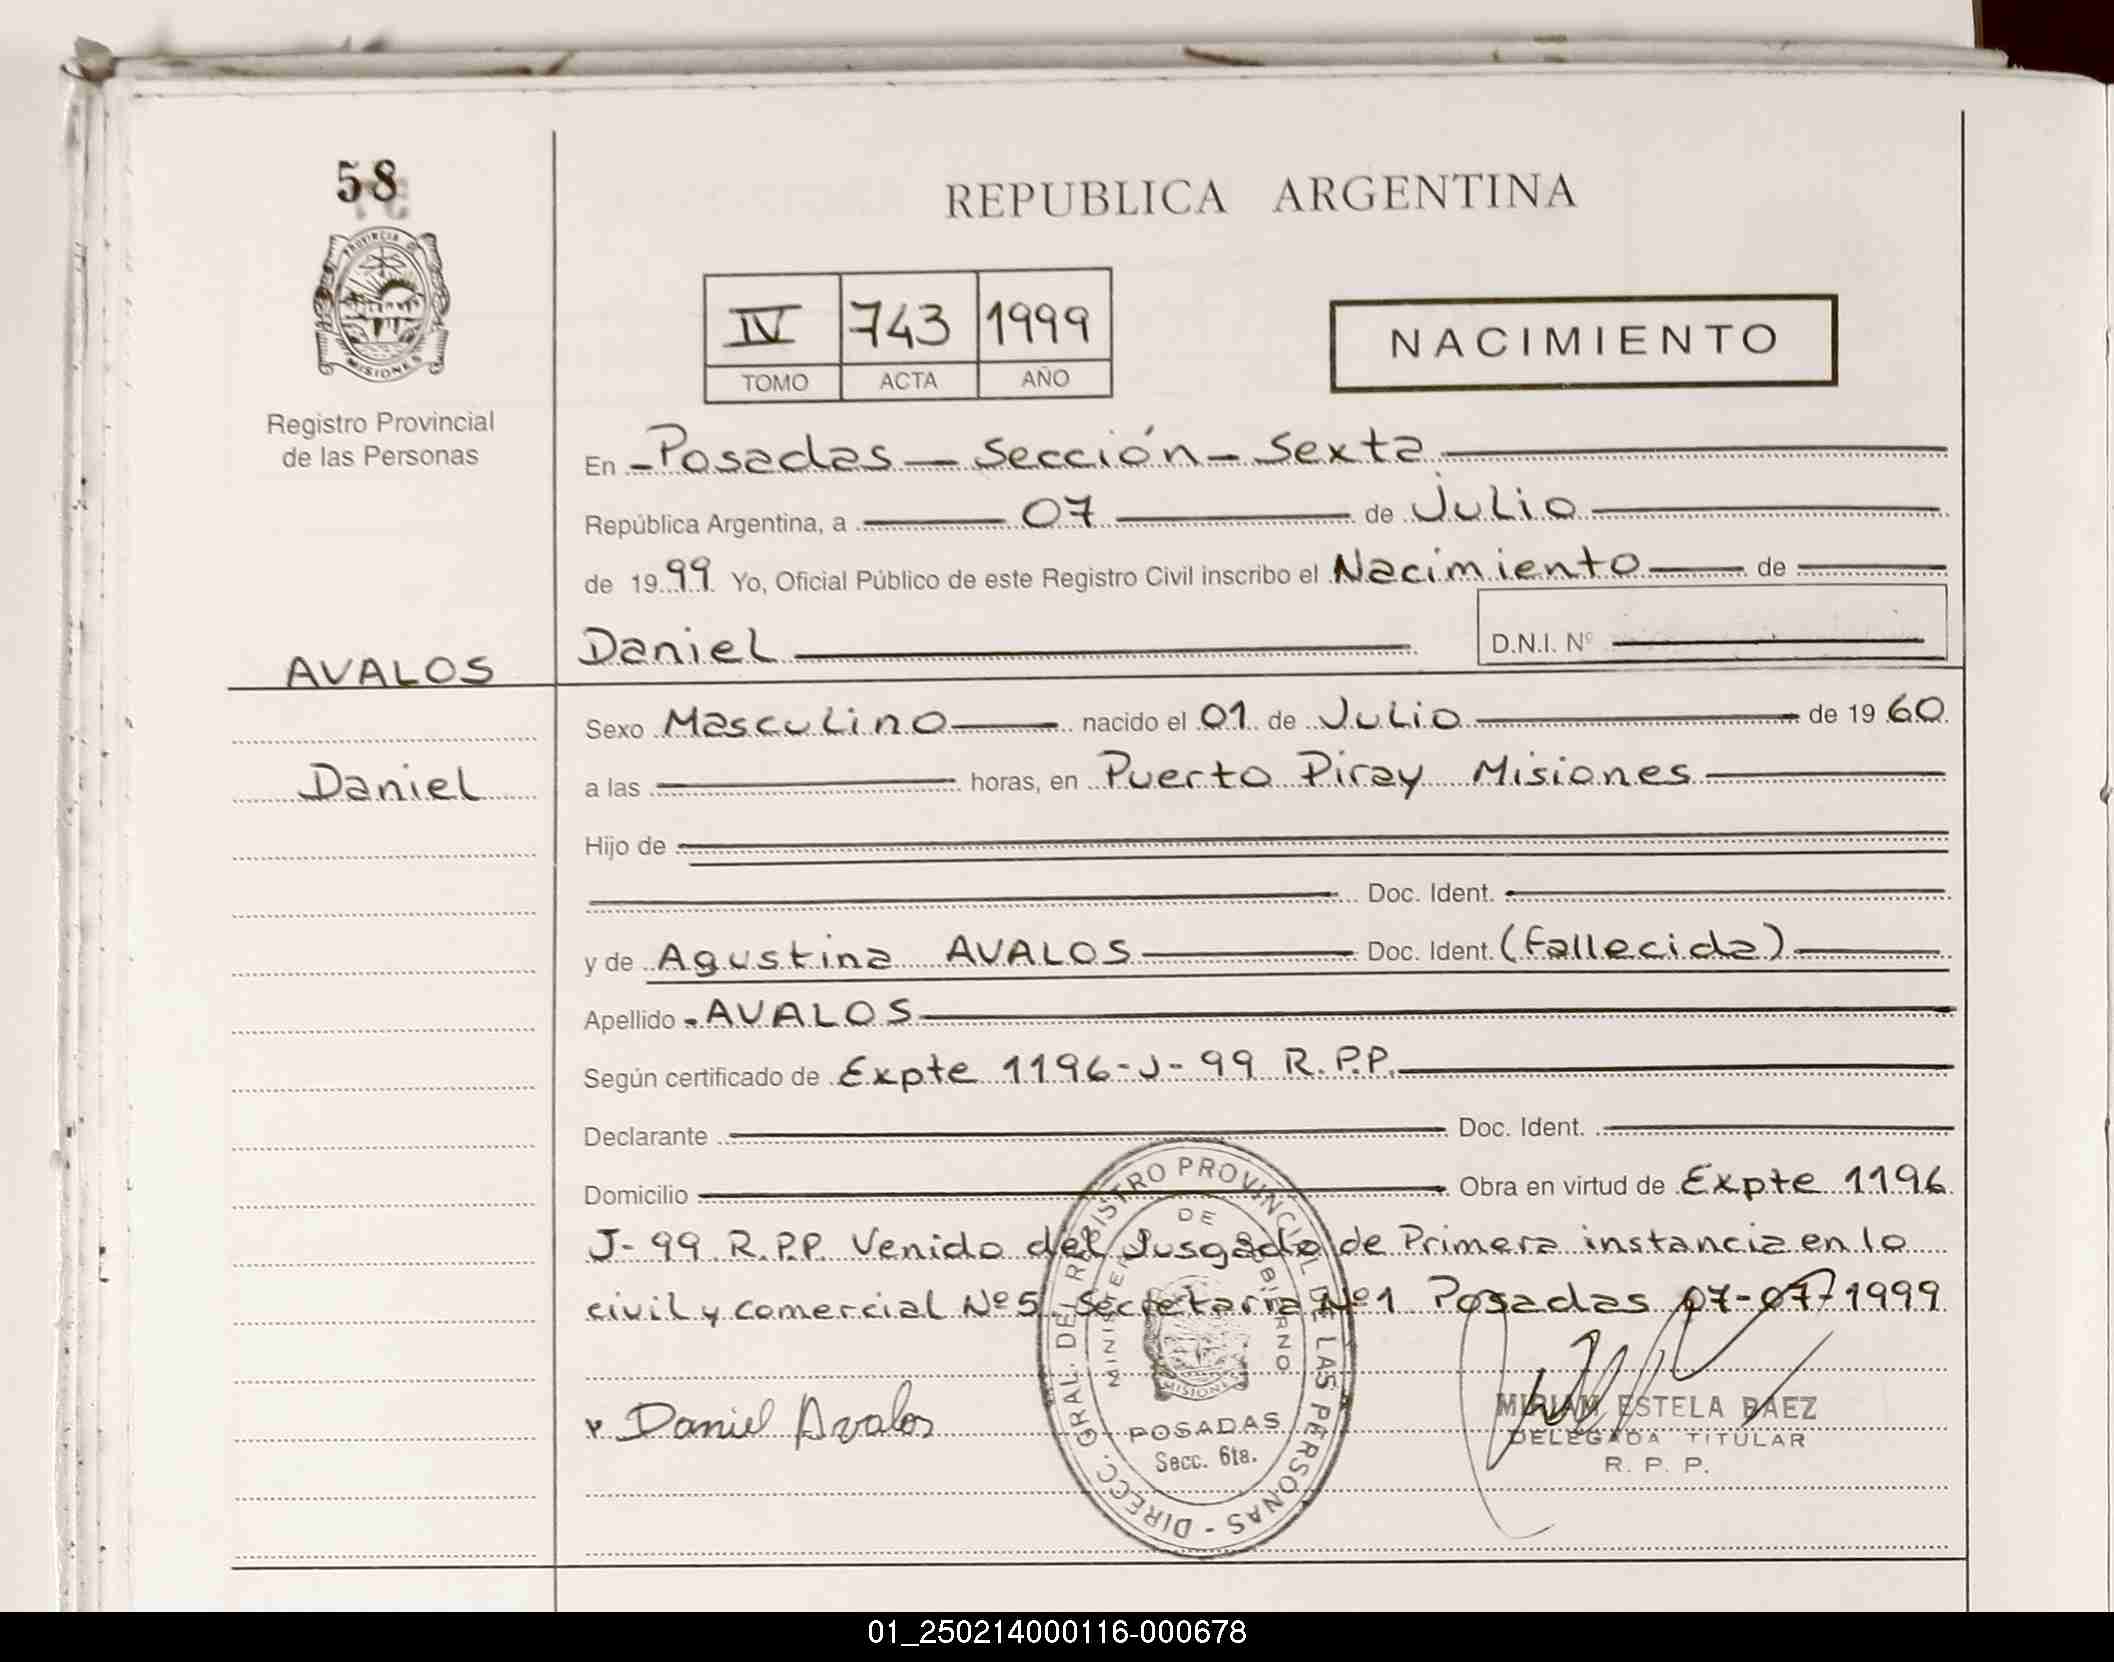 58
PROVINCIA DE
MISIONES
Registro Provincial
de las Personas
REPUBLICA ARGENTINA
IV 743 1999
TOMO ACTA AÑO
NACIMIENTO
En Posadas - Sección - Sexta
República Argentina, a 07 de Julio
de 1999 Yo, Oficial Público de este Registro Civil inscribo el Nacimiento de
AVALOS
Daniel D.N.I. Nº
Sexo Masculino nacido el 01 de Julio de 1960
Daniel
a las horas, en Puerto Piray Misiones
Hijo de
Doc. Ident.
y de Agustina AVALOS Doc. Ident. (Fallecida)
Apellido - AVALOS
Según certificado de Expte 1196-J-99 R.P.P.
Declarante Doc. Ident.
Domicilio Obra en virtud de Expte 1196
J-99 R.P.P. Venido del Jusgado de Primera instancia en lo
civil y comercial Nº 5 - Secretaria Nº 1 Posadas 07-07-1999
Daniel Avalos
DIRECC. GRAL. DE REGISTRO PROVINCIAL DE LAS PERSONAS -
MINISTERIO DE GOBIERNO
MISIONES
POSADAS
Secc. 6ta.
MIRIAM ESTELA BAEZ
DELEGADA TITULAR
R. P. P.
01_250214000116-000678